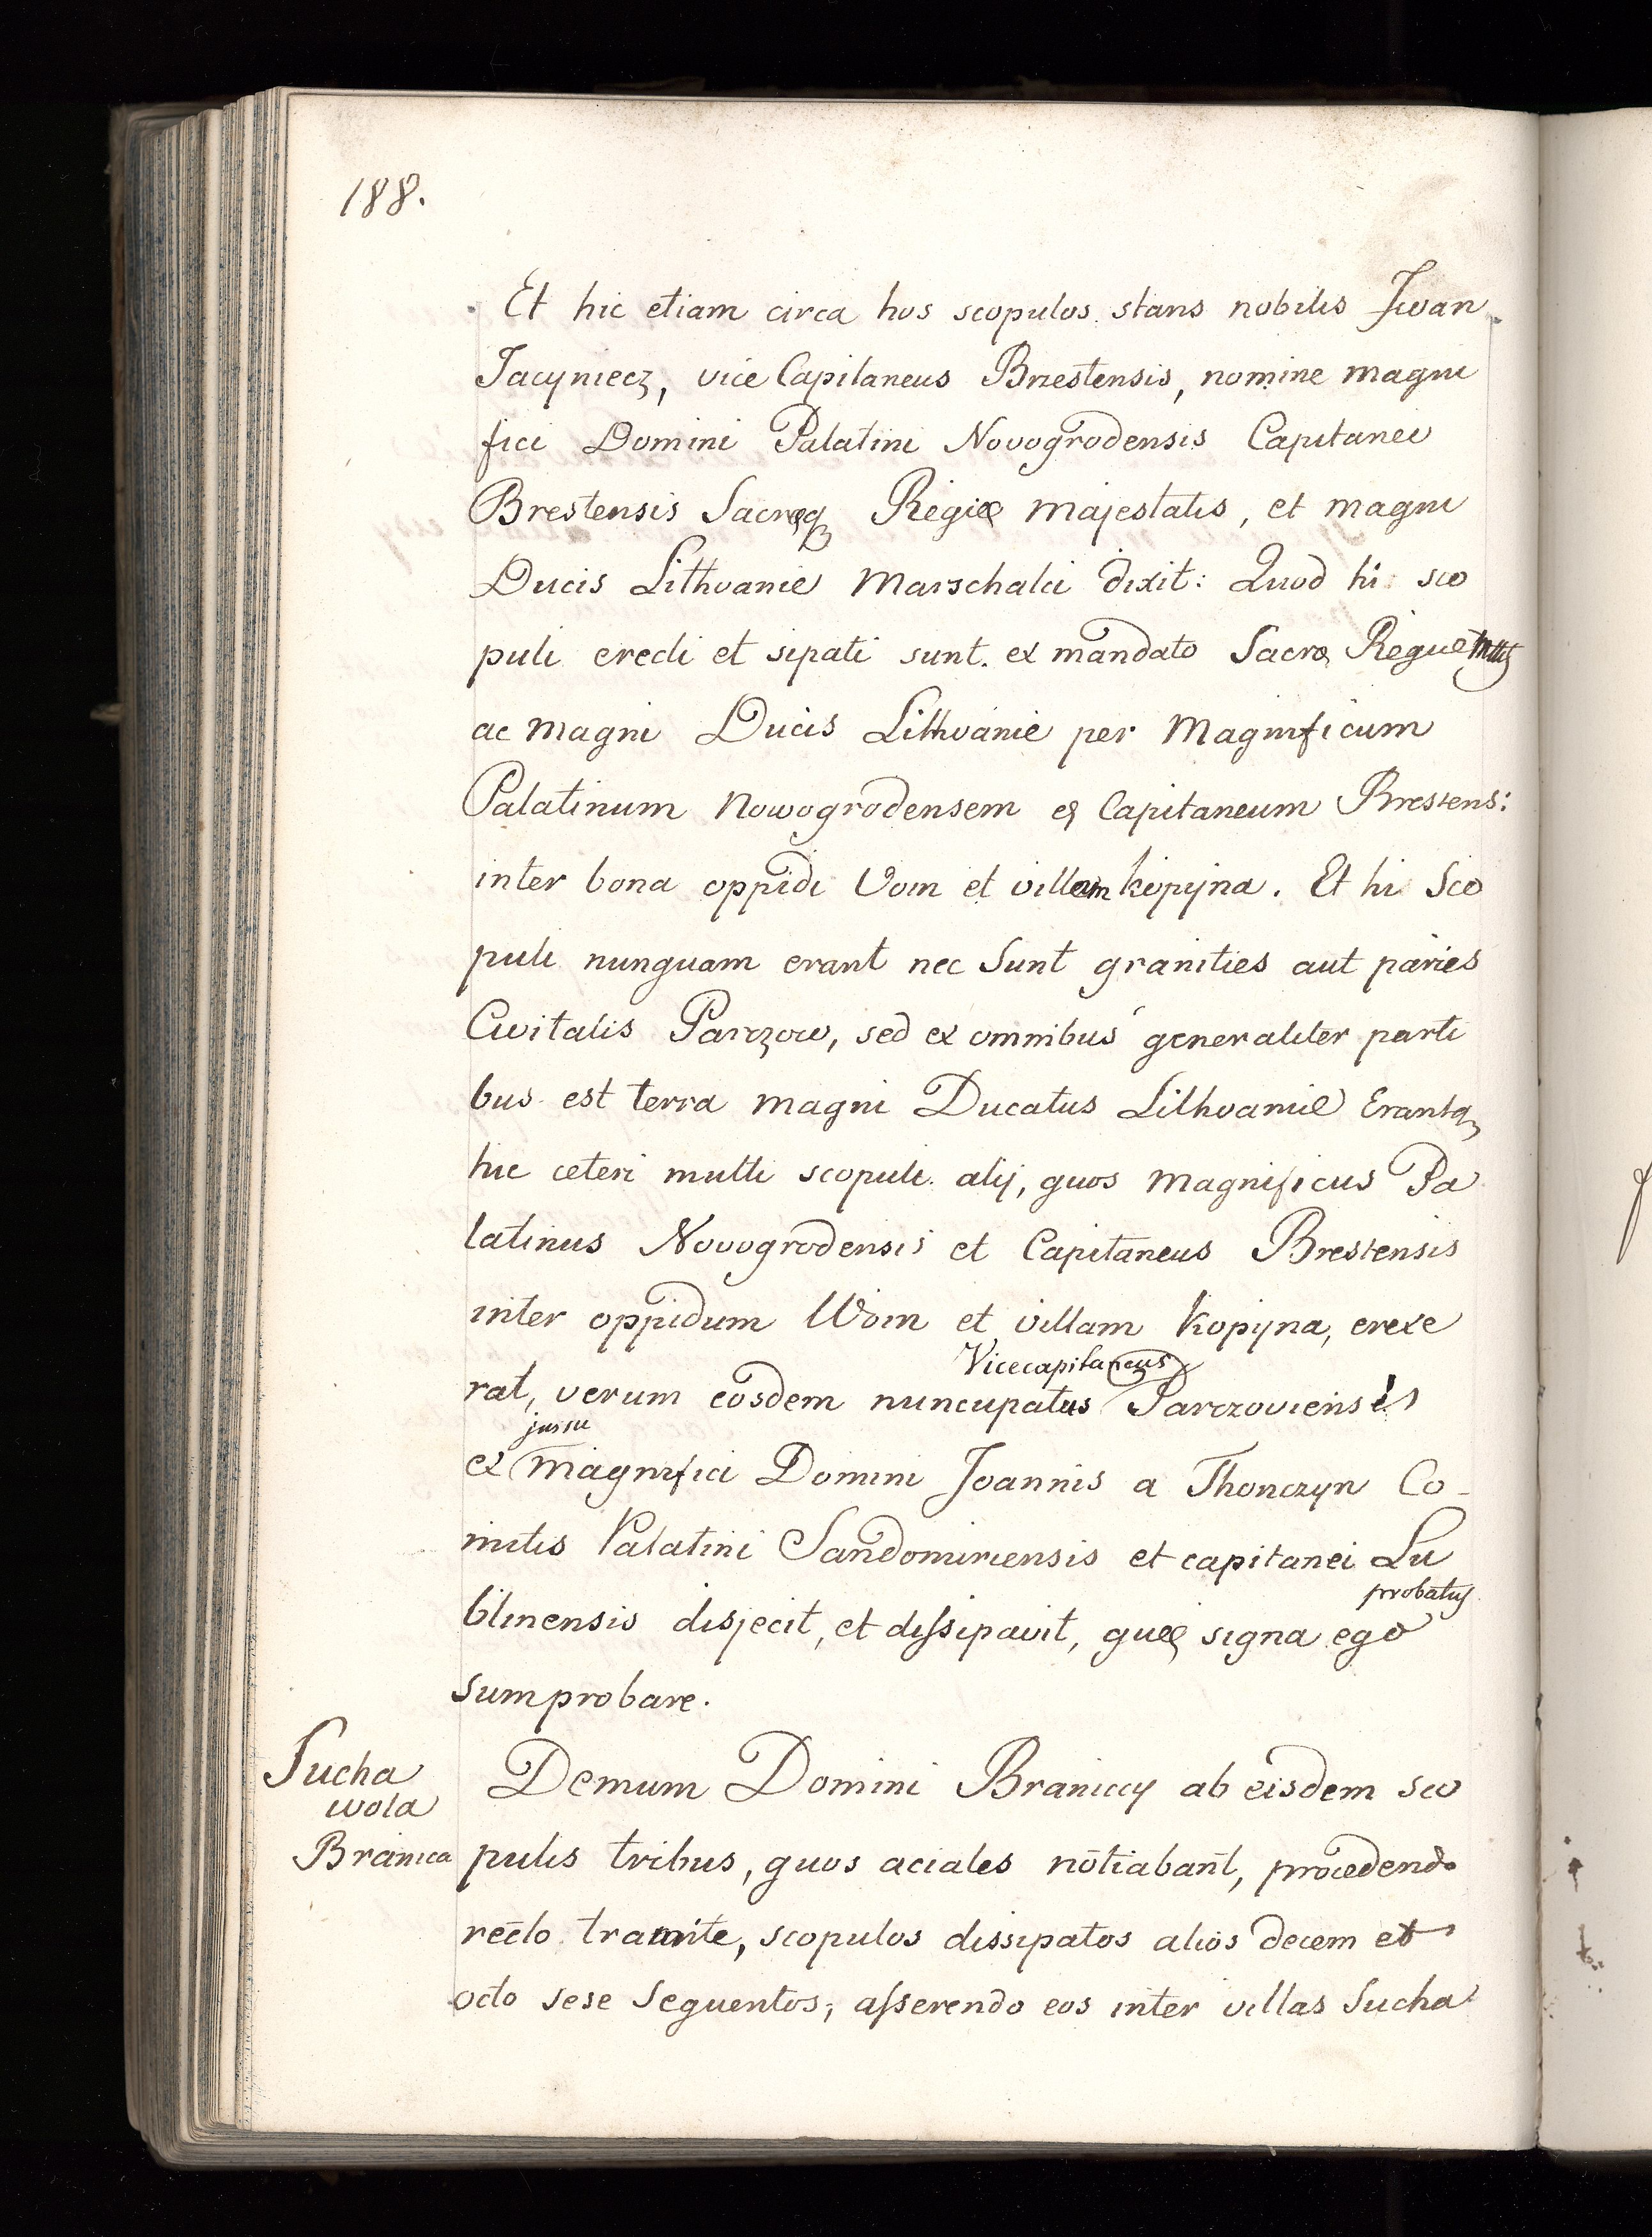 188.
Et hic etiam circa hos scopulos stans nobilis Iwan
Jacyniecz, vice Capitaneus Brzestensis, nomine magni
fici Domini Palatini Novogrodensis Capitanei
Brestensis Sacręq Regiæ majestatis, et magni
Ducis Lithvanie Marschalci dixit: Quod hi sco
puli erecti et sipati sunt. ex mandato Sacrę Regiæ Mttis
ac magni Ducis Lithvanie per Magnificum
Palatinum Nowogrodensem et Capitaneum Brestens:
inter bona oppidi Voin et villam kopijna. Et hi Sco
puli nunquam erant nec sunt granities aut paries
Civitatis Parczow, sed ex omnibus generaliter parti
bus est terra magni Ducatus Lithvaniæ Erantq
hic ceteri multi scopuli alij, quos Magnificus Pa
latinus Novogrodensis et Capitaneus Brestensis
inter oppidum Woin et villam Kopijna, erexe
Vicecapitaneus
rat, verum eosdem nuncupatus Parczoviensis
jussu
ex magnifici Domini Joannis a Thonczyn Co-
mitis Palatini Sandomiriensis et capitanei Lu
probatus
blinensis disjecit, et dissipavit, quæ signa ego
sum probare.
Sucha
wola
Branica
Demum Domini Braniccy ab eisdem sco
pulis tribus, quos aciales notiabant, procedendo
recto tramite, scopulos dissipatos alios decem et
octo sese sequentos, asserendo eos inter villas Sucha